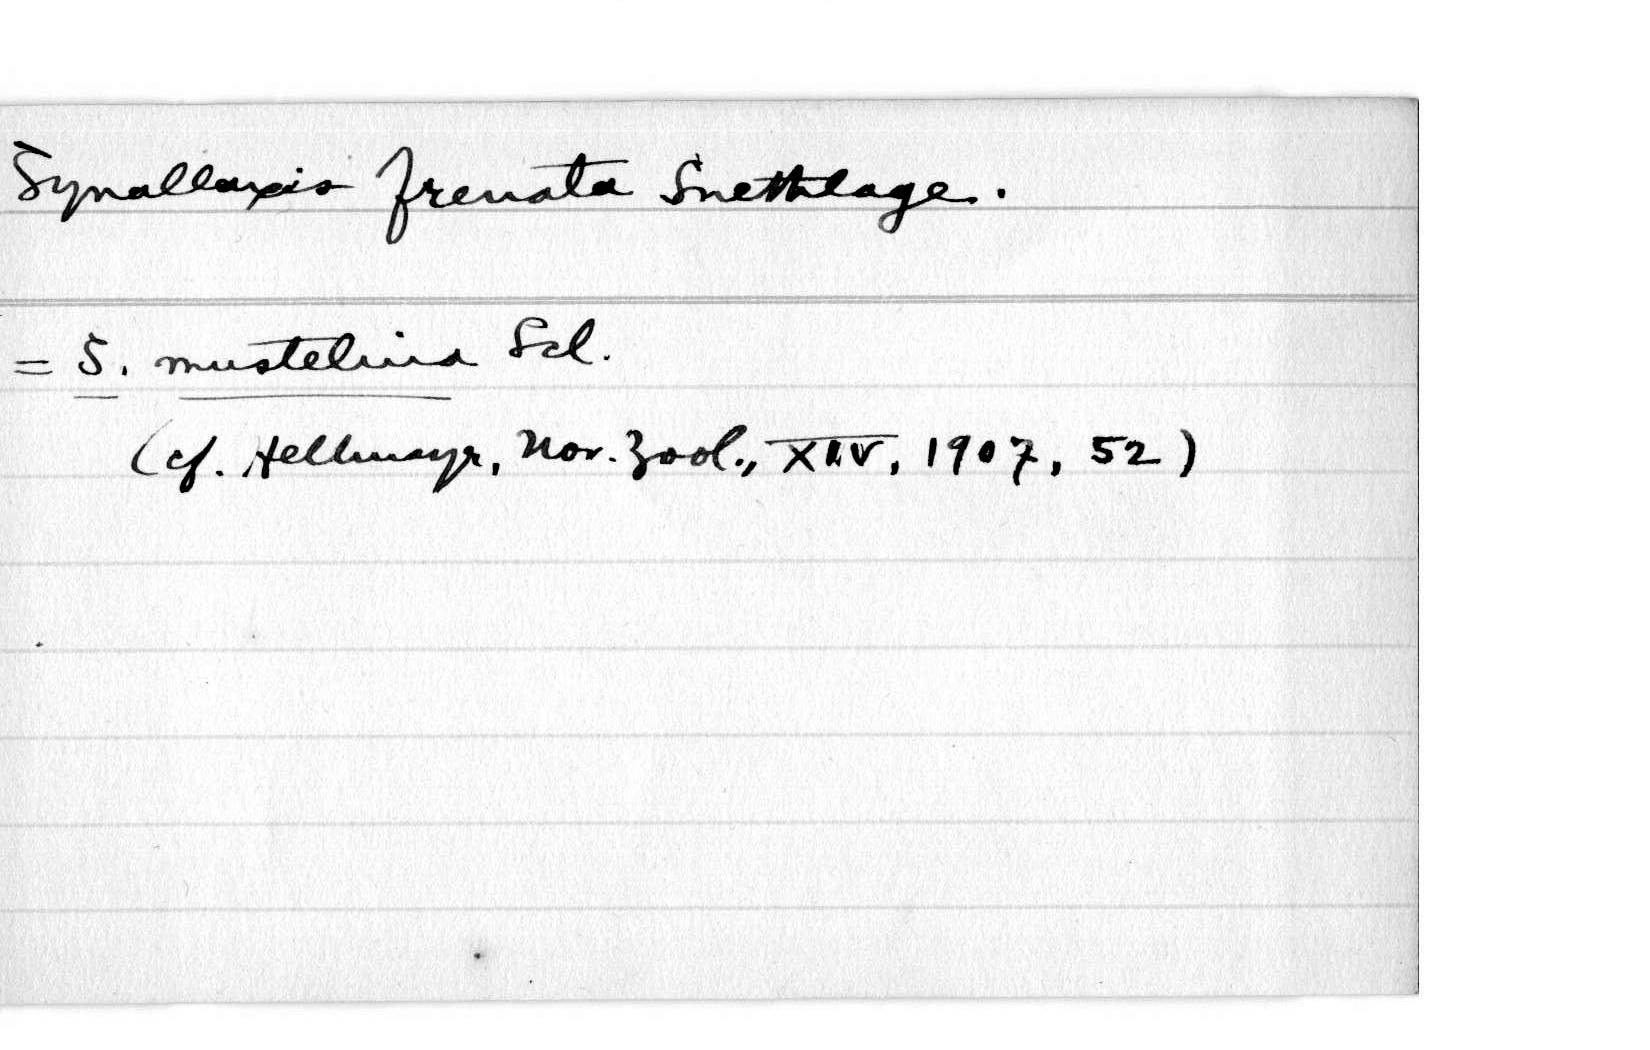 Synallaxis frenata Snethlage.
= S. mustelina Scl.
(cf. Hellmayr, Nov. Zool., XIV, 1907, 52)